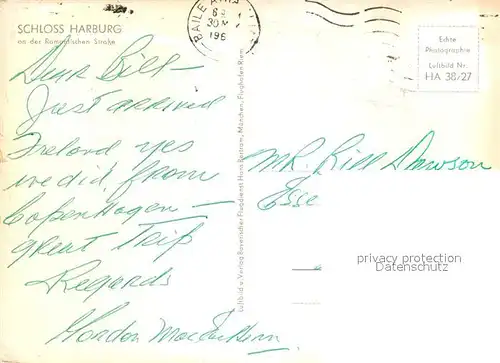 SCHLOSS HARBURG
an der Romantischen Straße
BAILE ÁTHA
30
196
Echte
Photographie
Luftbild Nr.
HA 38/27
Dear Bill –
Just arrived
Ireland yes
we did, from
Copenhagen –
great Trip
Regards
Gordon
MR. Bill Dawson
Esse
Luftbild u. Verlag Bayerischer Flugdienst Hans Bertram, München, Flughafen Riem
privacy protection
Datenschutz